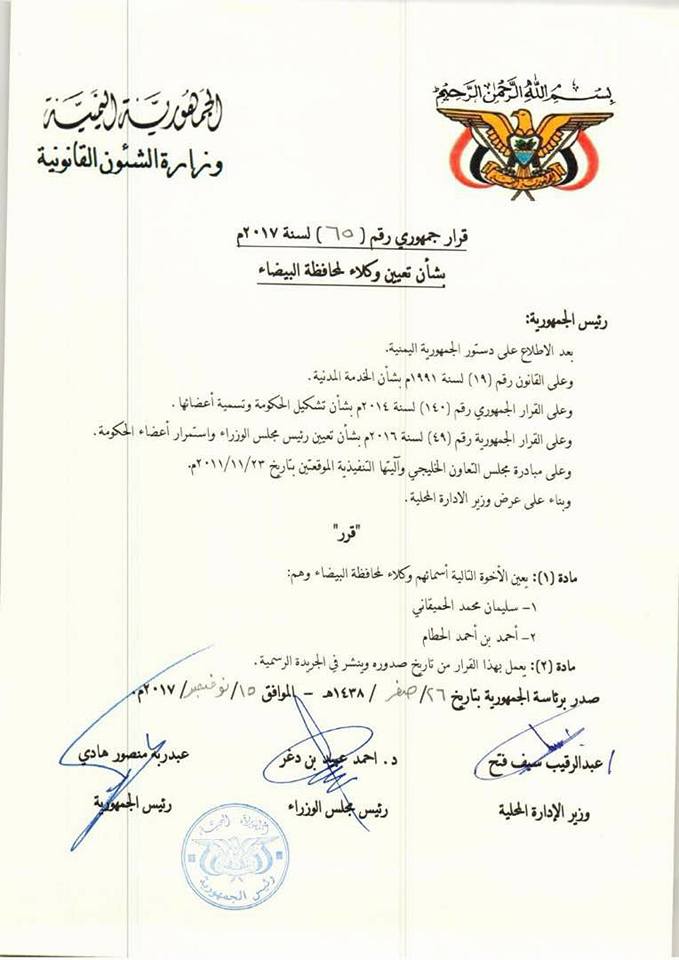 بسم الله الرحمن الرحيم
الجمهورية اليمنية
وزارة الشئون القانونية
قرار جمهوري رقم (٦٥) لسنة ٢٠١٧م
بشأن تعيين وكلاء لمحافظة البيضاء
رئيس الجمهورية:
بعد الاطلاع على دستور الجمهورية اليمنية.
وعلى القانون رقم (١٩) لسنة ١٩٩١م بشأن الخدمة المدنية.
وعلى القرار الجمهوري رقم (١٤٠) لسنة ٢٠١٤م بشأن تشكيل الحكومة وتسمية أعضائها .
وعلى القرار الجمهورية رقم (٤٩) لسنة ٢٠١٦م بشأن تعيين رئيس مجلس الوزراء واستمرار أعضاء الحكومة.
وعلى مبادرة مجلس التعاون الخليجي وآليتها التنفيذية الموقعتين بتاريخ ٢٠١١/١١/٢٣م.
وبناء على عرض وزير الادارة المحلية .
"قرر"
مادة (١): يعين الأخوة التالية أسمائهم وكلاء لمحافظة البيضاء وهم:
١- سليمان محمد الحميقاني
٢- أحمد بن أحمد الحطام
مادة (٢): يعمل بهذا القرار من تاريخ صدوره وينشر في الجريدة الرسمية .
صدر برئاسة الجمهورية بتاريخ ٢٦/ صفر / ١٤٣٨هـ - الموافق ١٥/ نوفمبر/ ٢٠١٧م.
عبدالرقيب سيف فتح
وزير الإدارة المحلية
د. احمد عبيد بن دغر
رئيس مجلس الوزراء
عبدربه منصور هادي
رئيس الجمهورية
رئيس الجمهورية